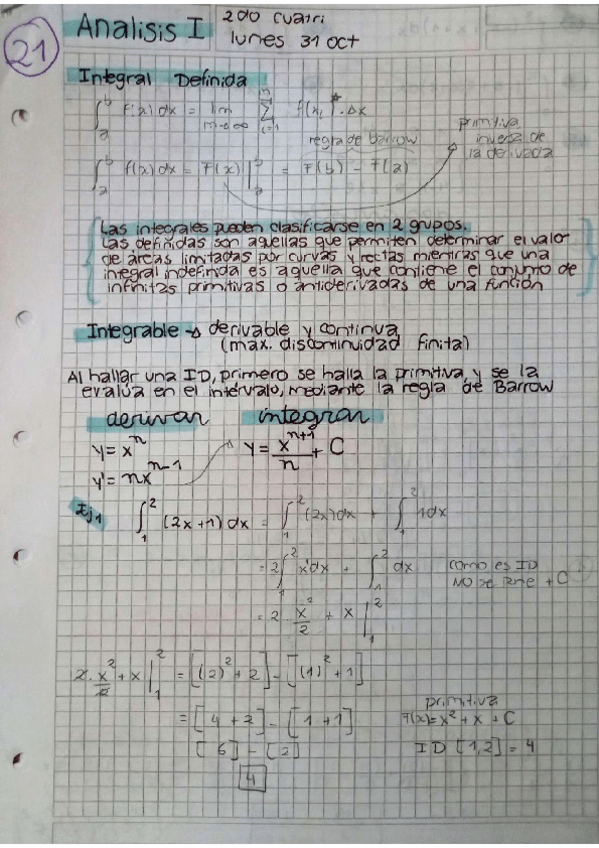 21
Analisis I
2do cuatri
lunes 31 oct
Integral Definida
∫_a^b f(x) dx = lim_{n→∞} ∑_{i=1}^{n} f(x_i)* · Δx
regla de Barrow
primitiva
inversa de
la derivada
∫_a^b f(x) dx = F(x) |_a^b = F(b) - F(a)
Las integrales pueden clasificarse en 2 grupos.
Las definidas son aquellas que permiten determinar el valor
de áreas limitadas por curvas y rectas mientras que una
integral indefinida es aquella que contiene el conjunto de
infinitas primitivas o antiderivadas de una función
Integrable → derivable y continua
(max. discontinuidad finita)
Al hallar una ID, primero se halla la primitiva, y se la
evalúa en el intervalo, mediante la regla de Barrow
derivar integrar
y = x^n
y' = nx^{n-1}
y = x^{n+1}/n + C
Ej1
∫_1^2 (2x+1) dx = ∫_1^2 (2x) dx + ∫_1^2 1dx
= 2∫_1^2 x'dx + ∫_1^2 dx
como es ID
NO se pone + C
= 2 x^2/2 + x |_1^2
2 · x^2/2 + x |_1^2 = [(2)^2 + 2] - [(1)^2 + 1]
= [4 + 2] - [1 + 1]
[6] - [2]
4
primitiva
F(x) = x^2 + x + C
ID [1,2] = 4